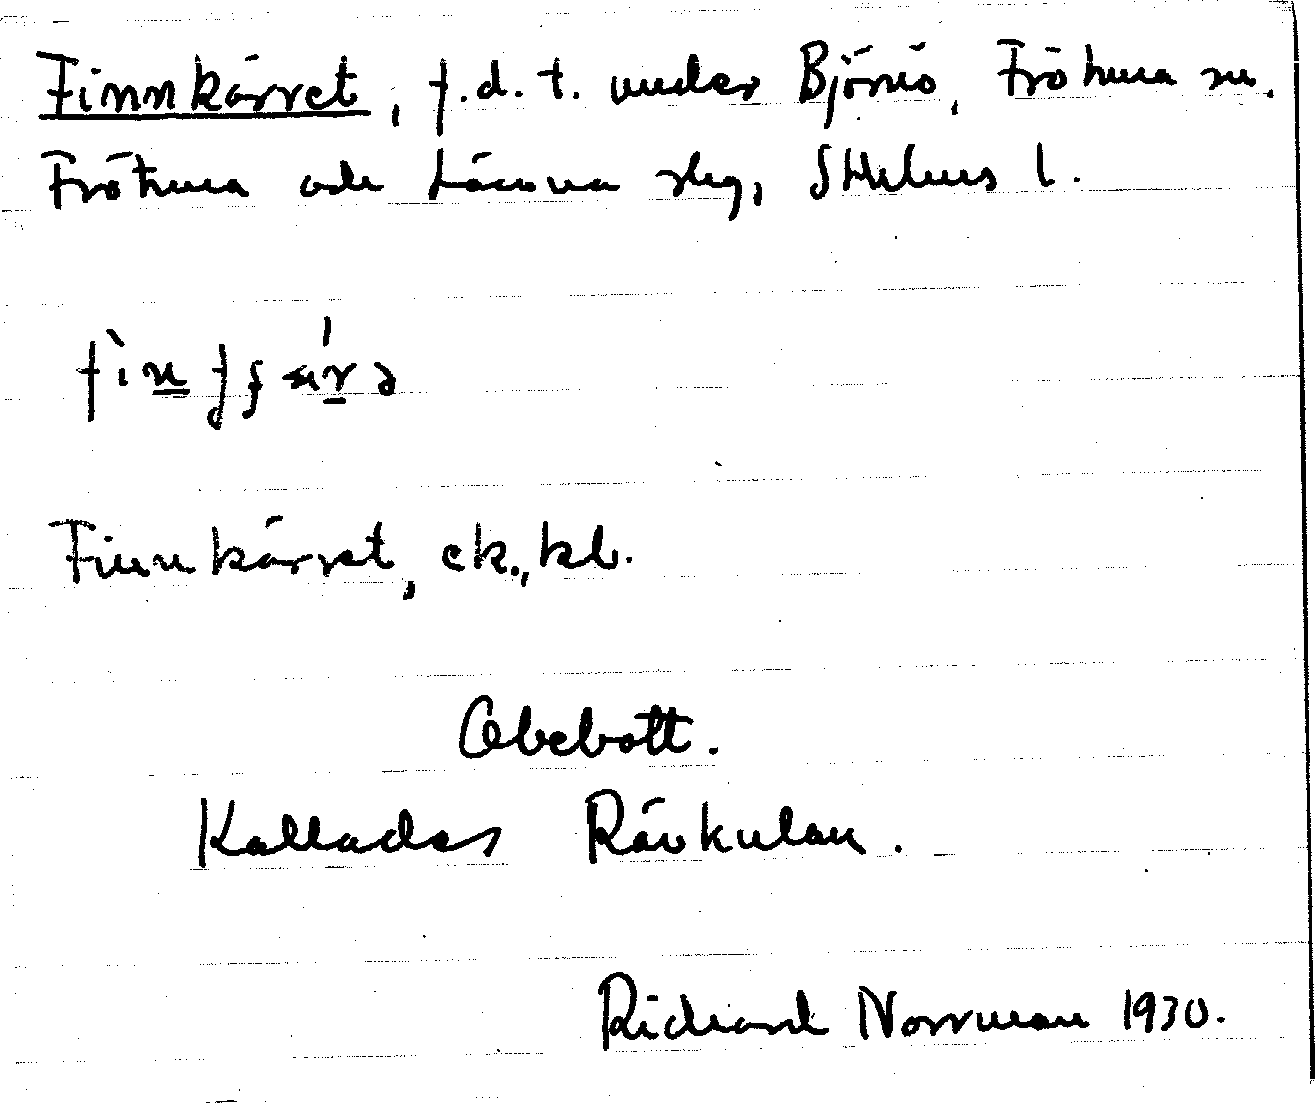 Finnkärret, f.d.t. under Björnö, Frötuna sn.
Frötuna och Länna skg, Sthlms l.
Finnkärret, ek., kb.
Obebott.
Kallades Rävkulan.
Richard Norrman 1930.